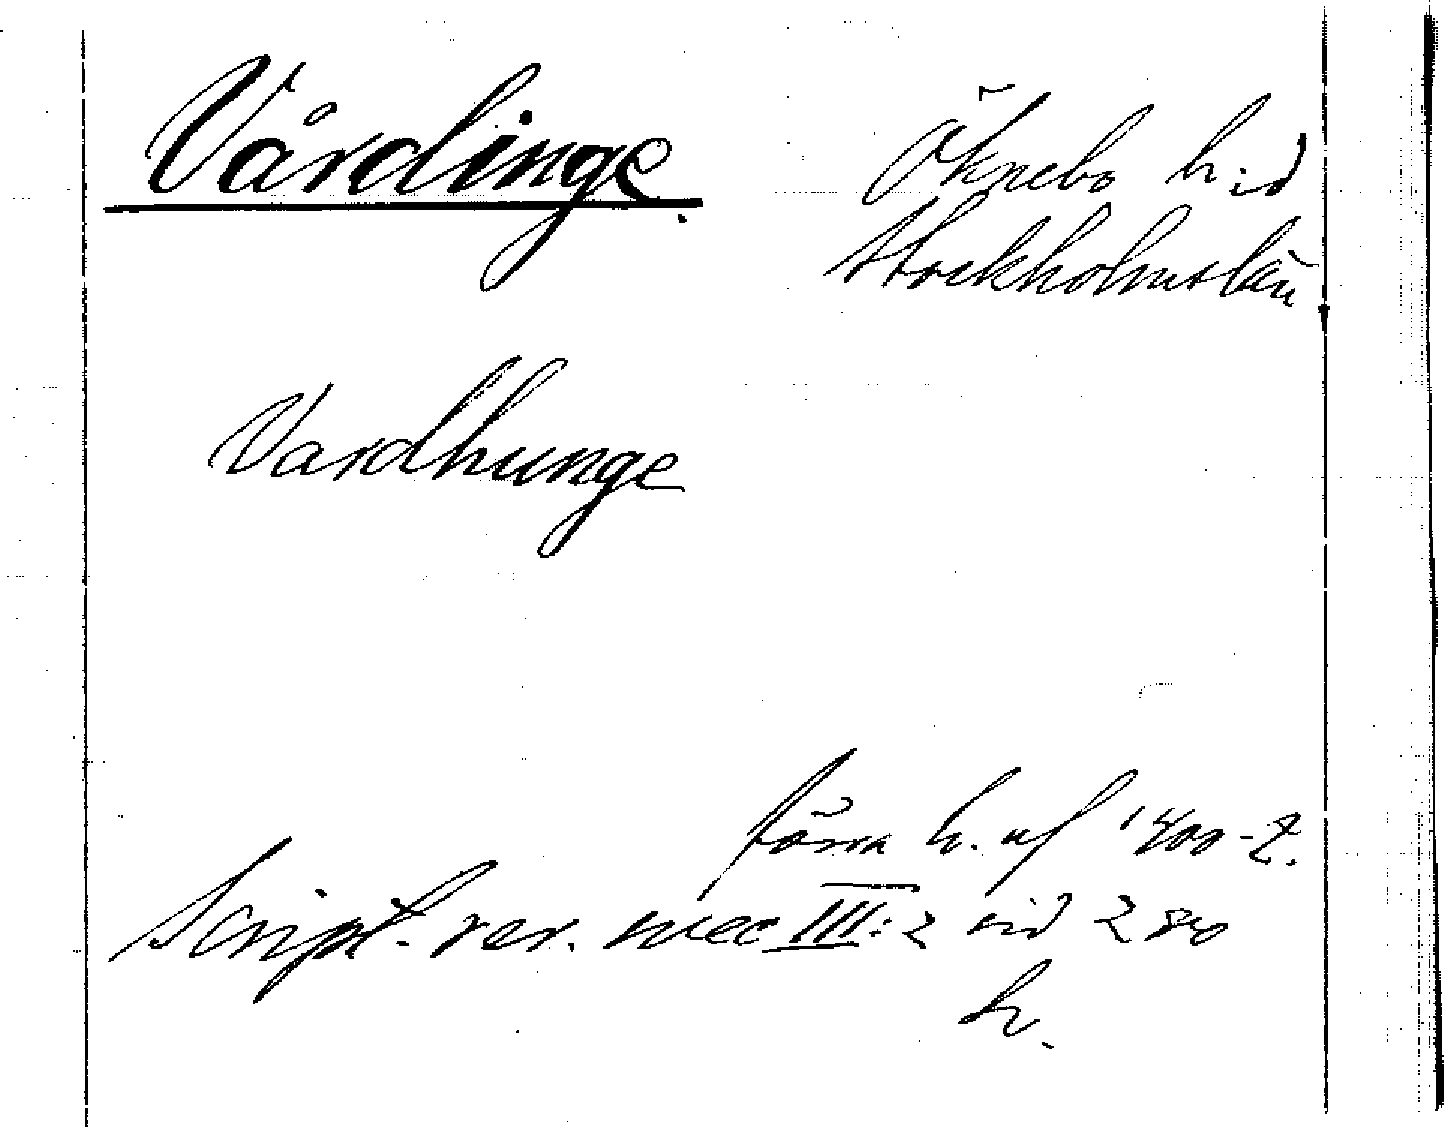 Vårdinge.
Öknebo h:d
Stockholms län
Vardhunge
förra h. af 1400-t.
Script. rer. svec III:2 sid 280
h.